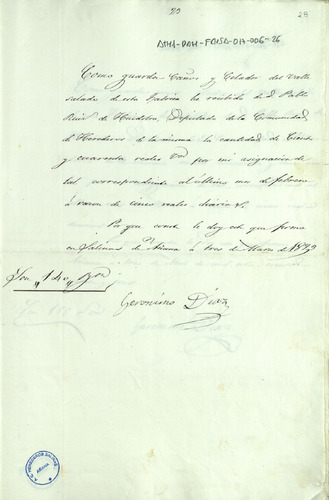 28
ATHA-DAH-FAISA-014-006-26
Como guarda Caños y Celador del Valle
salado de esta Fabrica he recibido de D. Pablo
Ruiz de Huidobro, Diputado de la Comunidad
de Herederos de la misma la cantidad de Ciento
y cuarenta reales Von por mi asignacion de
tal correspondiente al último mes de febrero
á razon de cinco reales diarios.
Pa que conste le doy este que firmo
en Salinas de Añana á tres de Marzo de
Son "140" Rvon
Geronimo Diaz
AÑANA